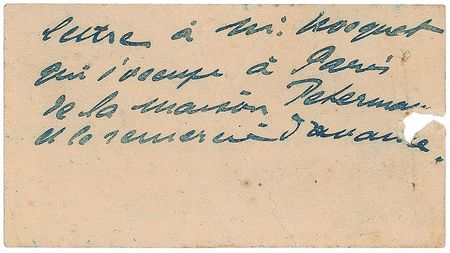 lettre à Mr. Hosquet
qui s'occupe à Paris
de la maison Peterman
et le remercie d'avance.